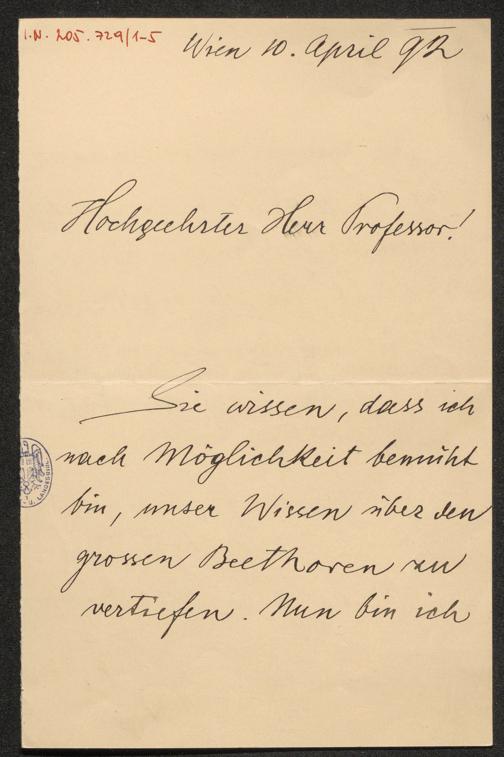 I.N. 205.729/1-5
Wien 10. April 92
Hochgeehrter Herr Professor!
Sie wissen, dass ich
nach Möglichkeit bemüht
bin, unser Wissen über den
grossen Beethoven zu
vertiefen. Nun bin ich
U. LANDESBIBL.